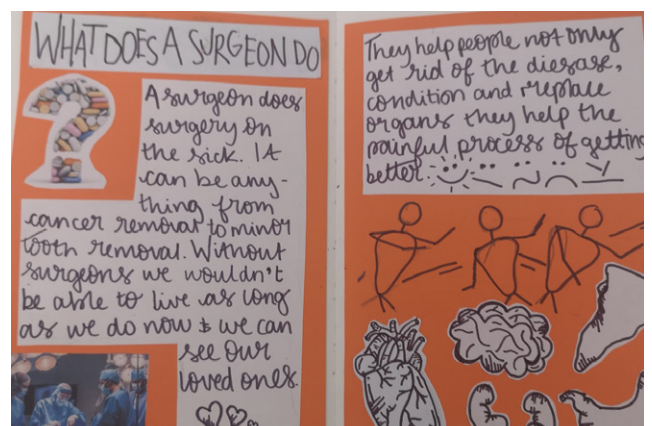 WHAT DOES A SURGEON DO
A surgeon does
surgery on
the sick. It
can be any-
thing from
cancer removal to minor
tooth removal. Without
surgeons we wouldn't
be able to live as long
as we do now & we can
see our
loved ones.
They help people not only
get rid of the diesase,
condition and rreplace
organs they help the
painful process of getting
better